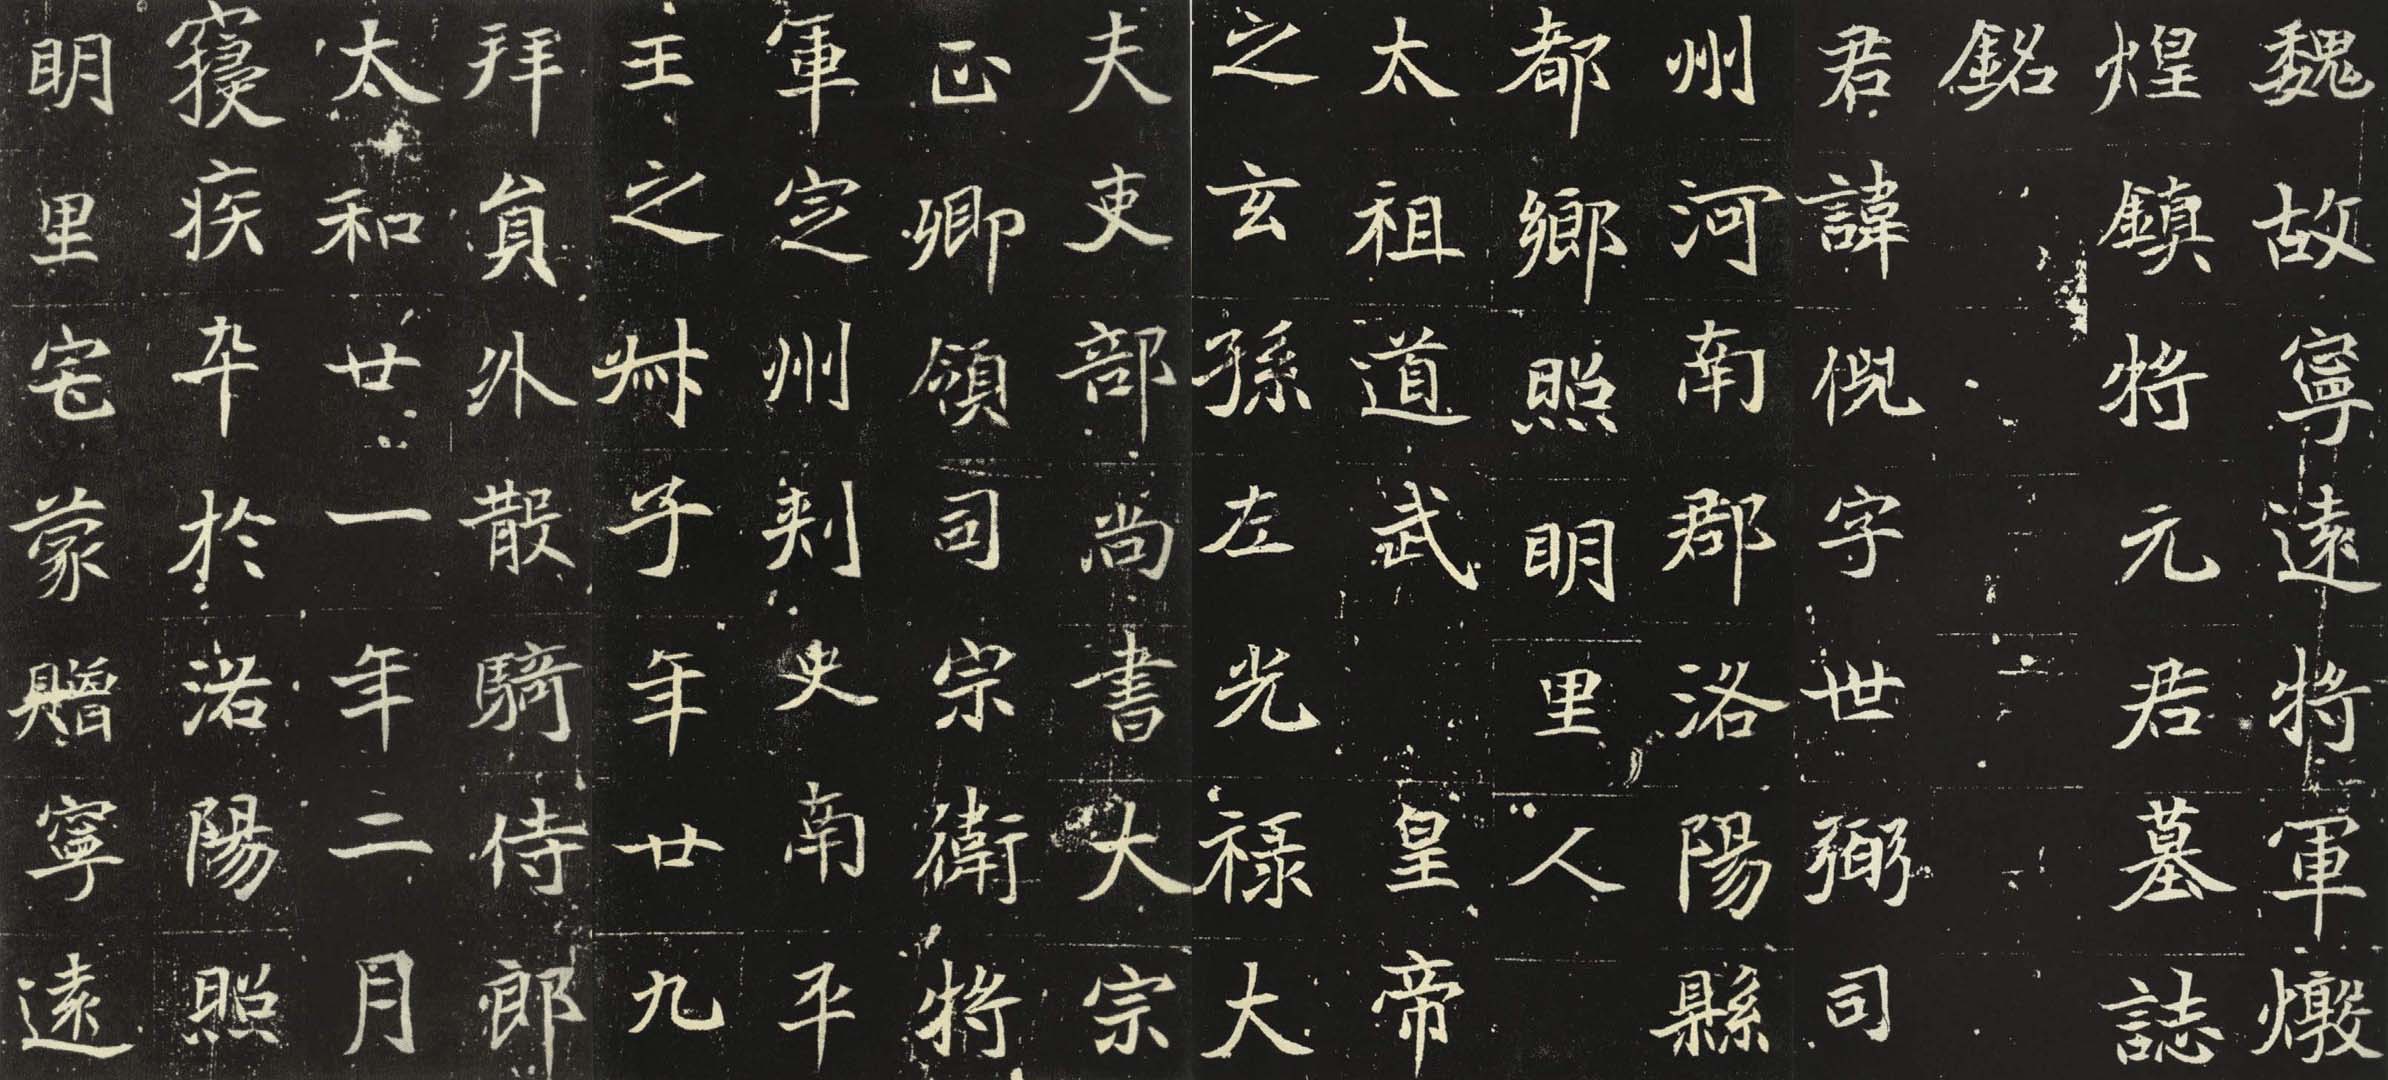 魏故寧遠將軍燉
煌鎮將元君墓誌
銘
君諱倪字世弼司
州河南郡洛陽縣
都鄉照明里人
太祖道武皇帝
之玄孫左光祿大
夫吏部尚書大宗
正卿領司宗衛將
軍定州刺史南平
王之叔子年廿九
拜員外散騎侍郎
太和廿一年二月
寢疾卒於洛陽照
明里宅蒙贈寧遠